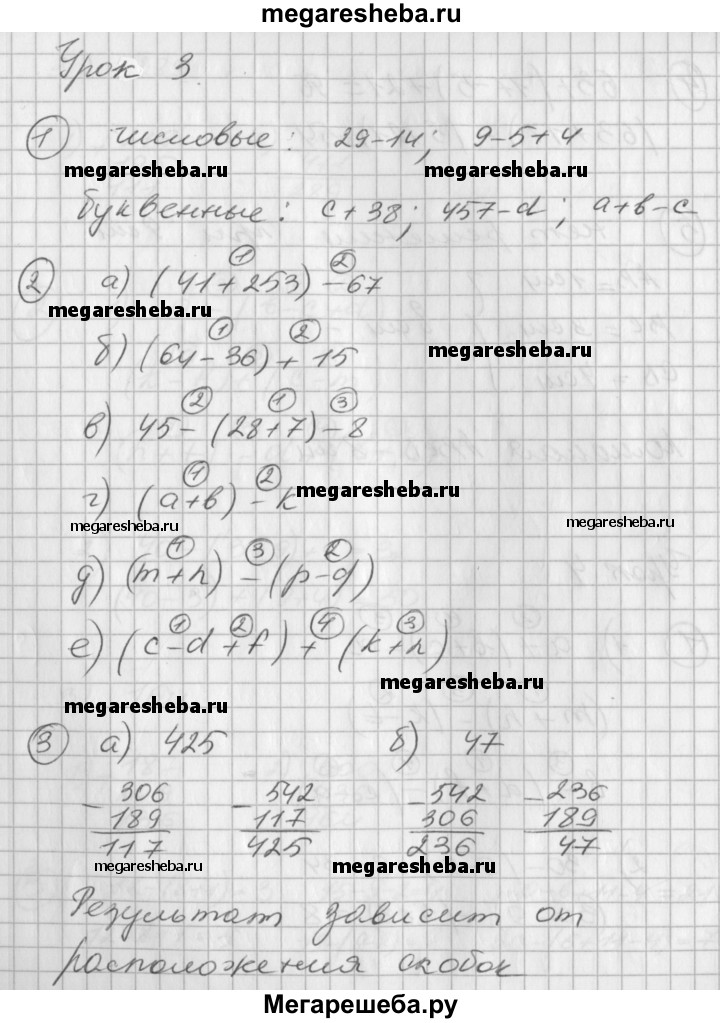 megaresheba.ru
Урок 3
① числовые: 29-14; 9-5+4
megaresheba.ru megaresheba.ru
буквенные: c+38; 457-d; a+b-c
① ②
② а) (41+253)-67
megaresheba.ru
① ②
б) (64-36)+15
megaresheba.ru
② ① ③
в) 45-(28+7)-8
① ②
г) (a+b)-k
megaresheba.ru
megaresheba.ru megaresheba.ru
① ③ ②
д) (m+n)-(p-q)
① ② ④ ③
е) (c-d+f)+(k+n)
megaresheba.ru
megaresheba.ru
③ а) 425 б) 47
- 306 - 542 - 542 - 236
189 117 306 189
117 425 236 47
megaresheba.ru megaresheba.ru
Результат зависит от
расположения скобок
Мегарешеба.ру